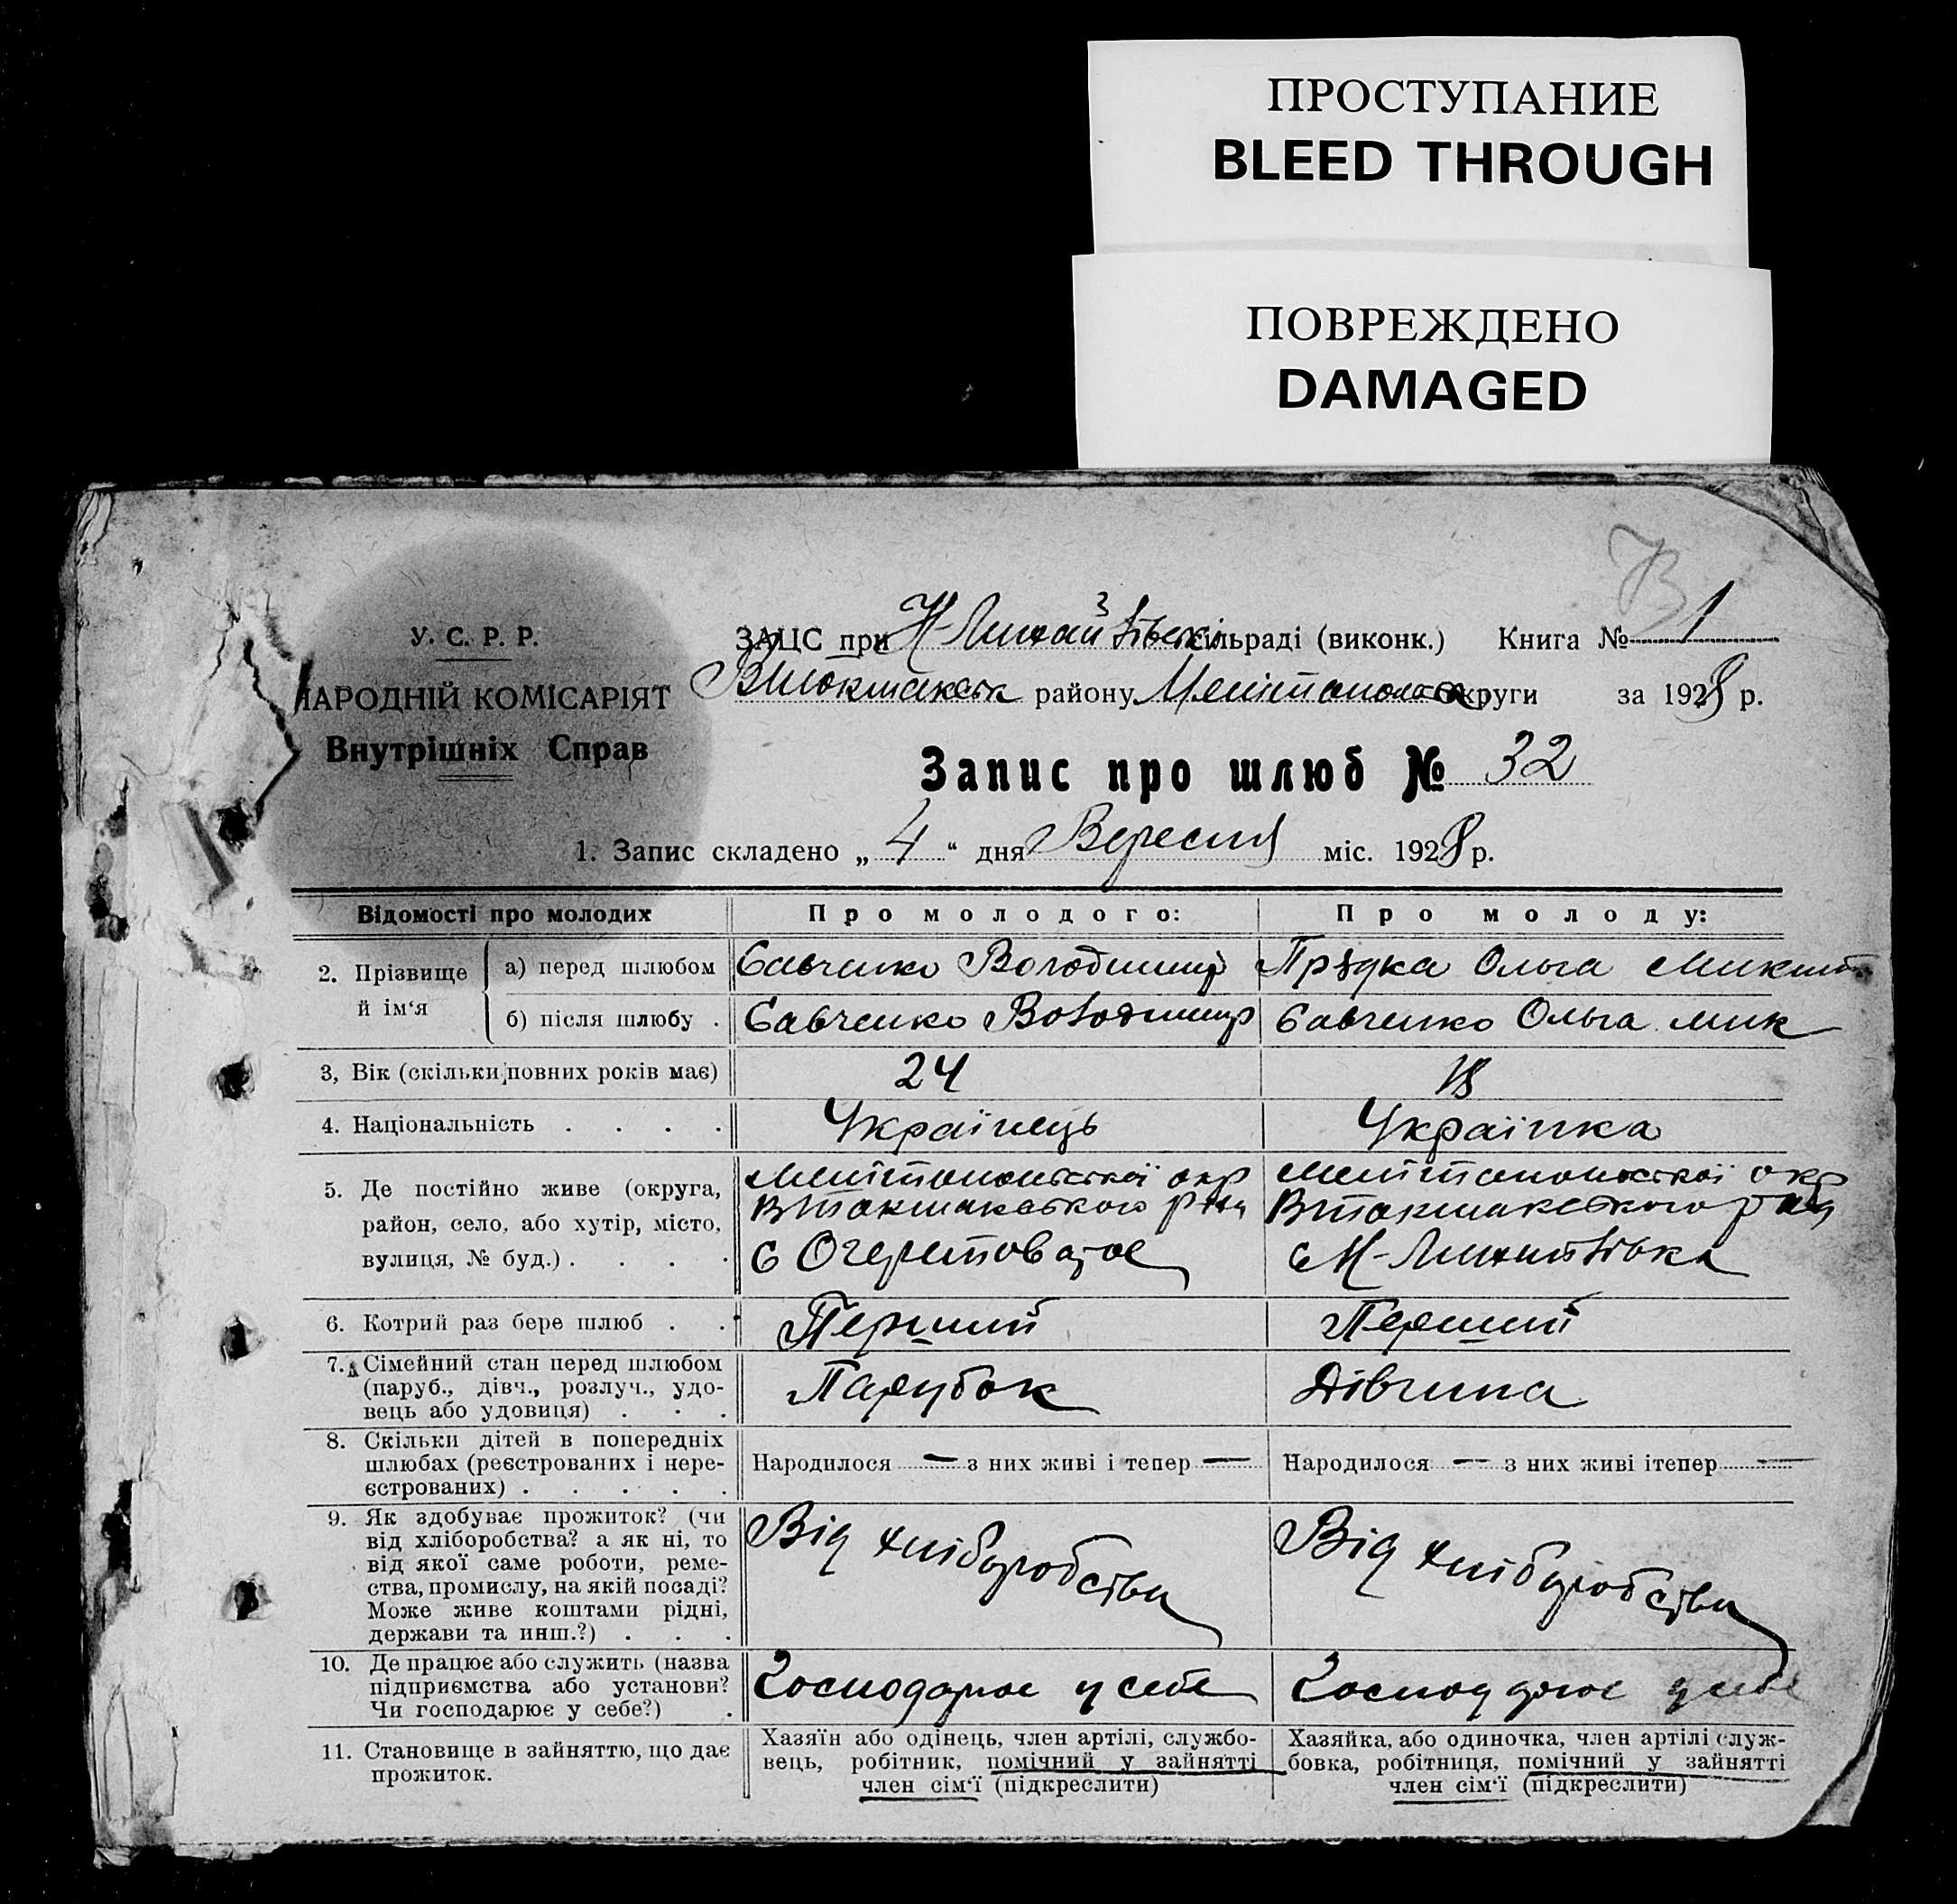 ПРОСТУПАНИЕ
BLEED THROUGH
ПОВРЕЖДЕНО
DAMAGED
У. С. Р. Р.
НАРОДНІЙ КОМІСАРІЯТ
Внутрішніх Справ
ЗАЦС при сільраді (виконк.) Книга № 1
району округи за 1928 р.
Запис про шлюб № 32
1. Запис складено „ 4 “ дня Вересня міс. 1928 р.
Відомості про молодих
Про молодого:
Про молоду:
2. Прізвище й ім‘я
а) перед шлюбом Савченко Володимир Ольга
б) після шлюбу . Савченко Володимир Савченко Ольга Мик
3, Вік (скільки повних років має) 24 18
4. Національність . . . . Українець Українка
5. Де постійно живе (округа,
район, село, або хутір, місто,
вулиця, № буд.) . . . .
Мелітопольської окр
Втокмакського р-ну
с
Мелітопольської окр
Втокмакського
с
6. Котрий раз бере шлюб . . Перший Перший
7. Сімейний стан перед шлюбом
(паруб., дівч., розлуч., удо-
вець або удовиця) . . .
Парубок Дівчина
8. Скільки дітей в попередніх
шлюбах (реєстрованих і нере-
єстрованих) . . . . .
Народилося — з них живі і тепер —
Народилося — з них живі ітепер —
9. Як здобуває прожиток? (чи
від хліборобства? а як ні, то
від якої саме роботи, реме-
ства, промислу, на якій посаді?
Може живе коштами рідні,
держави та инш.?) . . .
Від хліборобства
Від хліборобства
10. Де працює або служить (назва
підприємства або установи?
Чи господарює у себе?) .
Господарює у себе
Господарює у себе
11. Становище в зайняттю, що дає
прожиток.
Хазяїн або одінець, член артілі, службо-
вець, робітник, помічний у зайнятті
член сім‘ї (підкреслити)
Хазяйка, або одиночка, член артілі служ-
бовка, робітниця, помічний у зайнятті
член сім‘ї (підкреслити)